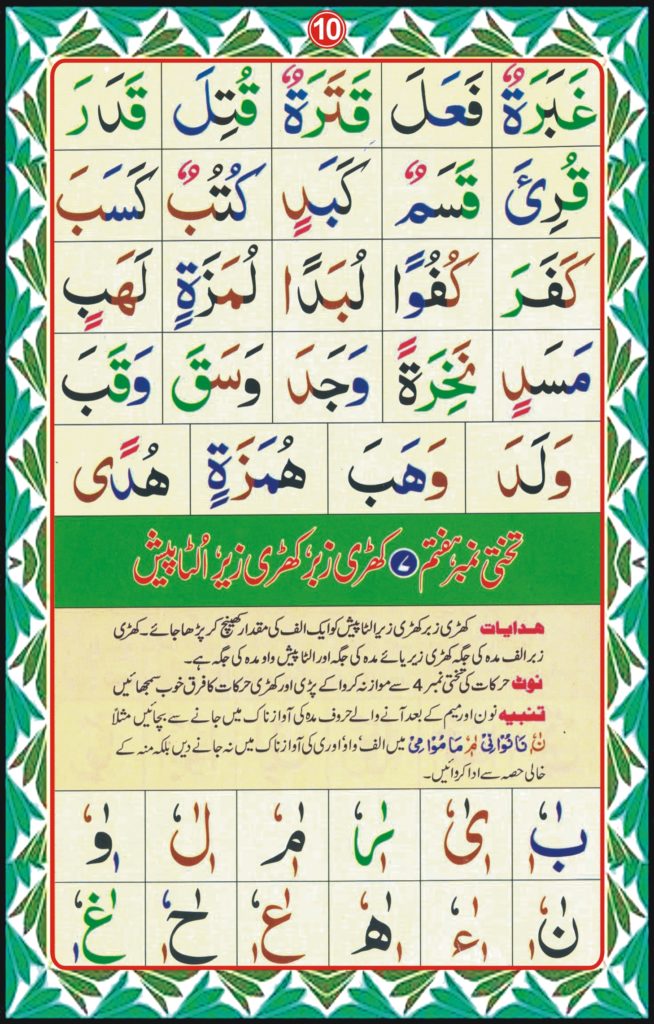 10
غَبَرَةٌ فَعَلَ قَتَرَةٌ قُتِلَ قَدَرَ
قُرِئَ قَسَمٌ كَبَدٍ كُتُبٌ كَسَبَ
كَفَرَ كُفُوًا لُبَدًا لُمَزَةٍ لَهَبٍ
مَسَدٍ نَخِرَةً وَجَدَ وَسَقَ وَقَبَ
وَلَدَ وَهَبَ هُمَزَةٍ هُدًى
تختی نمبر ہفتم ۷ کھڑی زبر، کھڑی زیر، اُلٹا پیش
ھدایات کھڑی زبر کھڑی زیر الٹا پیش کو ایک الف کی مقدار کھینچ کر پڑھا جائے۔ کھڑی
زبر الف مدہ کی جگہ کھڑی زیر یائے مدہ کی جگہ اور الٹا پیش واو مدہ کی جگہ ہے۔
نوٹ حرکات کی تختی نمبر 4 سے موازنہ کروا کے پڑی اور کھڑی حرکات کا فرق خوب سمجھائیں
تنبیہ نون اور میم کے بعد آنے والے حروف مدہ کی آواز ناک میں جانے سے بچائیں مثلاً
نٰ نَا نُوْا نِیْ مٰ مَا مُوْا مِیْ میں الف، واو، اور ی کی آواز ناک میں نہ جانے دیں بلکہ منہ کے
خالی حصہ سے ادا کروائیں۔
بٰ یٰ رٰ مٰ لٰ وٰ
نٰ ءٰ ھٰ عٰ حٰ غٰ